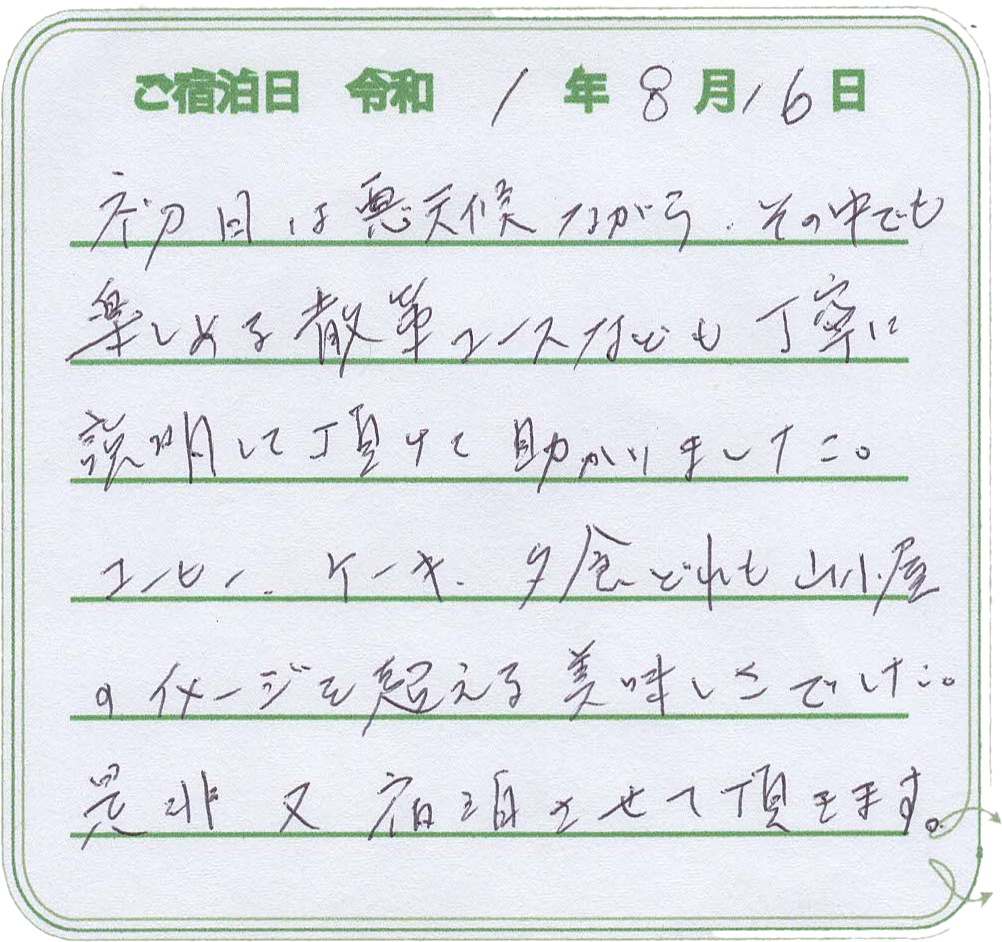 ご宿泊日 令和 1 年 8 月 16 日
初日は悪天候ながら、その中でも
楽しめる散策コースなども丁寧に
説明して頂けて助かりました。
コーヒー、ケーキ、夕食どれも山小屋
のイメージを超える美味しさでした。
是非又宿泊させて頂きます。